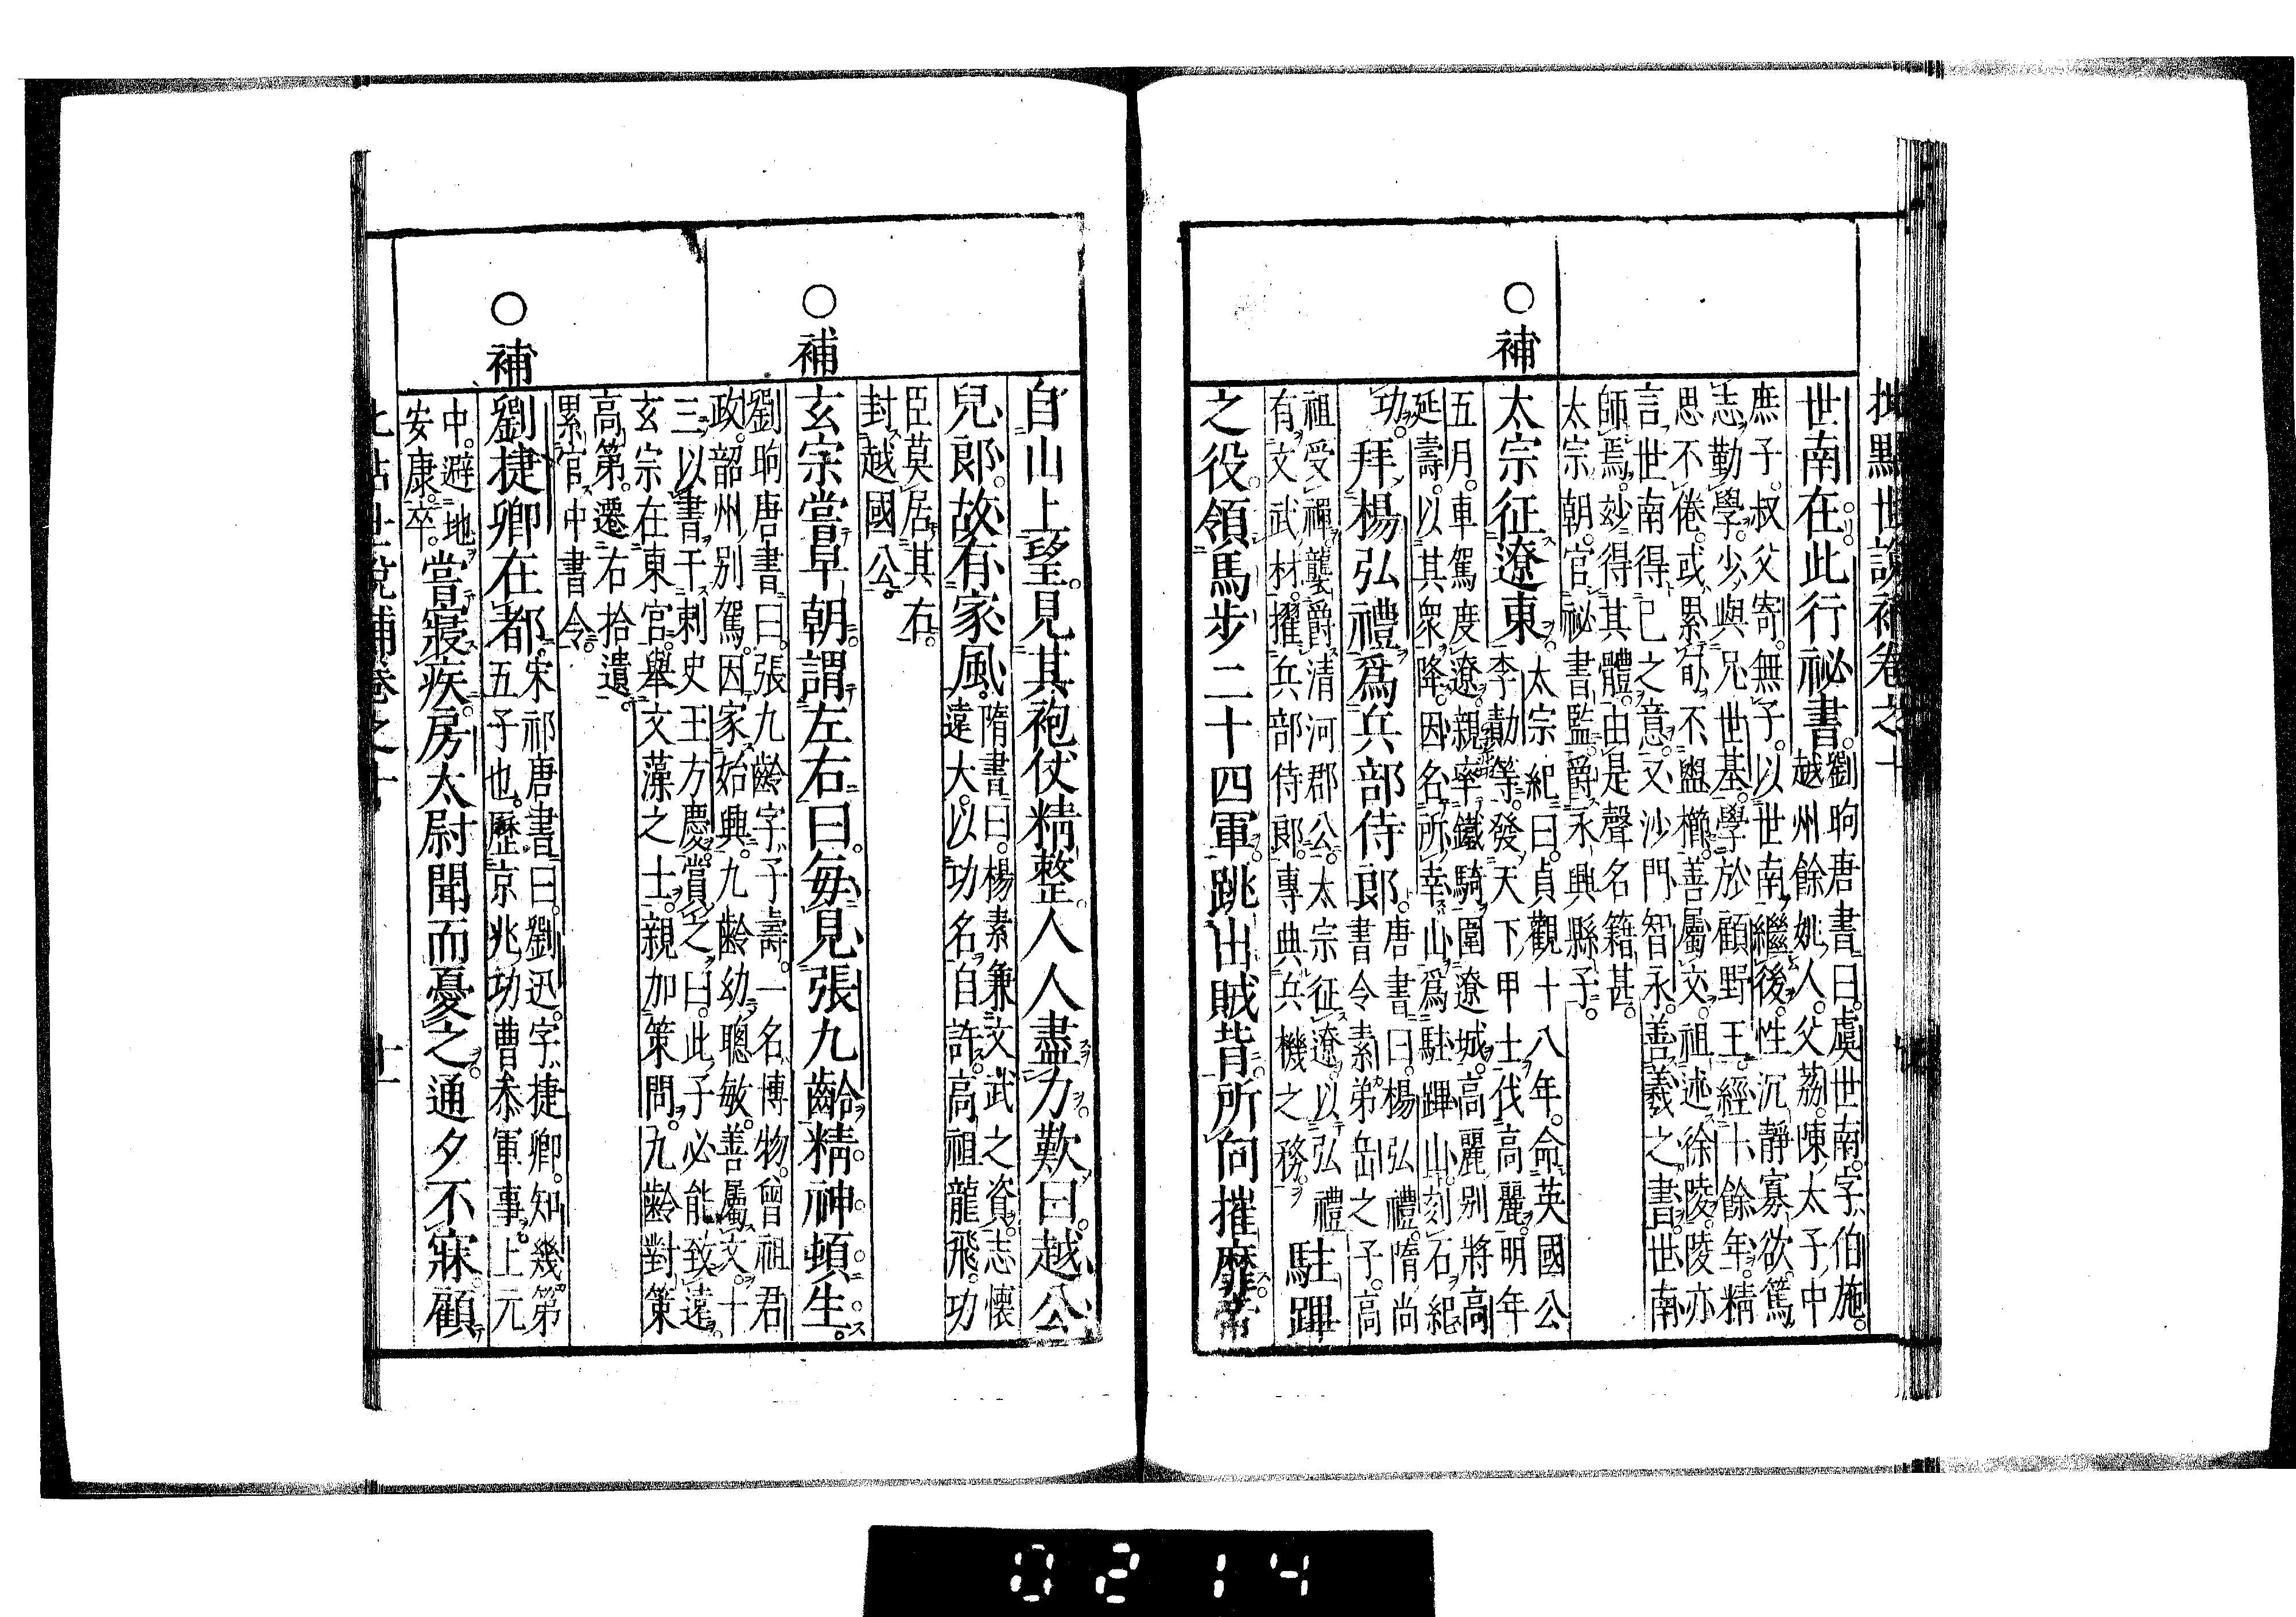 世南在此行祕書劉昫唐書曰虞世南字伯施
越州餘姚人父荔陳太子中
庶子叔父寄無子以世南繼後性沉靜寡欲篤
志勤學少與兄世基學於顧野王經十餘年精
思不倦或累旬不盥櫛善屬文祖述徐陵陵亦
言世南得己之意又沙門智永善羲之書世南
師焉妙得其體由是聲名籍甚
太宗朝官祕書監爵永興縣子
○補
太宗征遼東太宗紀曰貞觀十八年命英國公
李勣等發天下甲士伐高麗明年
五月車駕度遼親率鐵騎圍遼城高麗別將高
延壽以其衆降因名所幸山爲駐蹕山刻石紀
功拜楊弘禮爲兵部侍郎唐書曰楊弘禮隋尚
書令素弟岳之子高
祖受禪襲爵清河郡公太宗征遼以弘禮
有文武材擢兵部侍郎專典兵機之務駐蹕
之役領馬步二十四軍跳出賊背所向摧靡帝
自山上望見其袍仗精整人人盡力歎曰越公
兒郎故有家風隋書曰楊素兼文武之資志懷
遠大以功名自許高祖龍飛功
臣莫居其右
封越國公
○補
玄宗嘗早朝謂左右曰每見張九齡精神頓生
劉昫唐書曰張九齡字子壽一名博物曾祖君
政韶州別駕因家始興九齡幼聰敏善屬文十
三以書干刺史王方慶賞之曰此子必能致遠
玄宗在東宮舉文藻之士親加策問九齡對策
高第遷右拾遺
累官中書令
○補
劉捷卿在都宋祁唐書曰劉迅字捷卿知幾第
五子也歷京兆功曹叅軍事上元
中避地
安康卒嘗寢疾房太尉聞而憂之通夕不寐顧